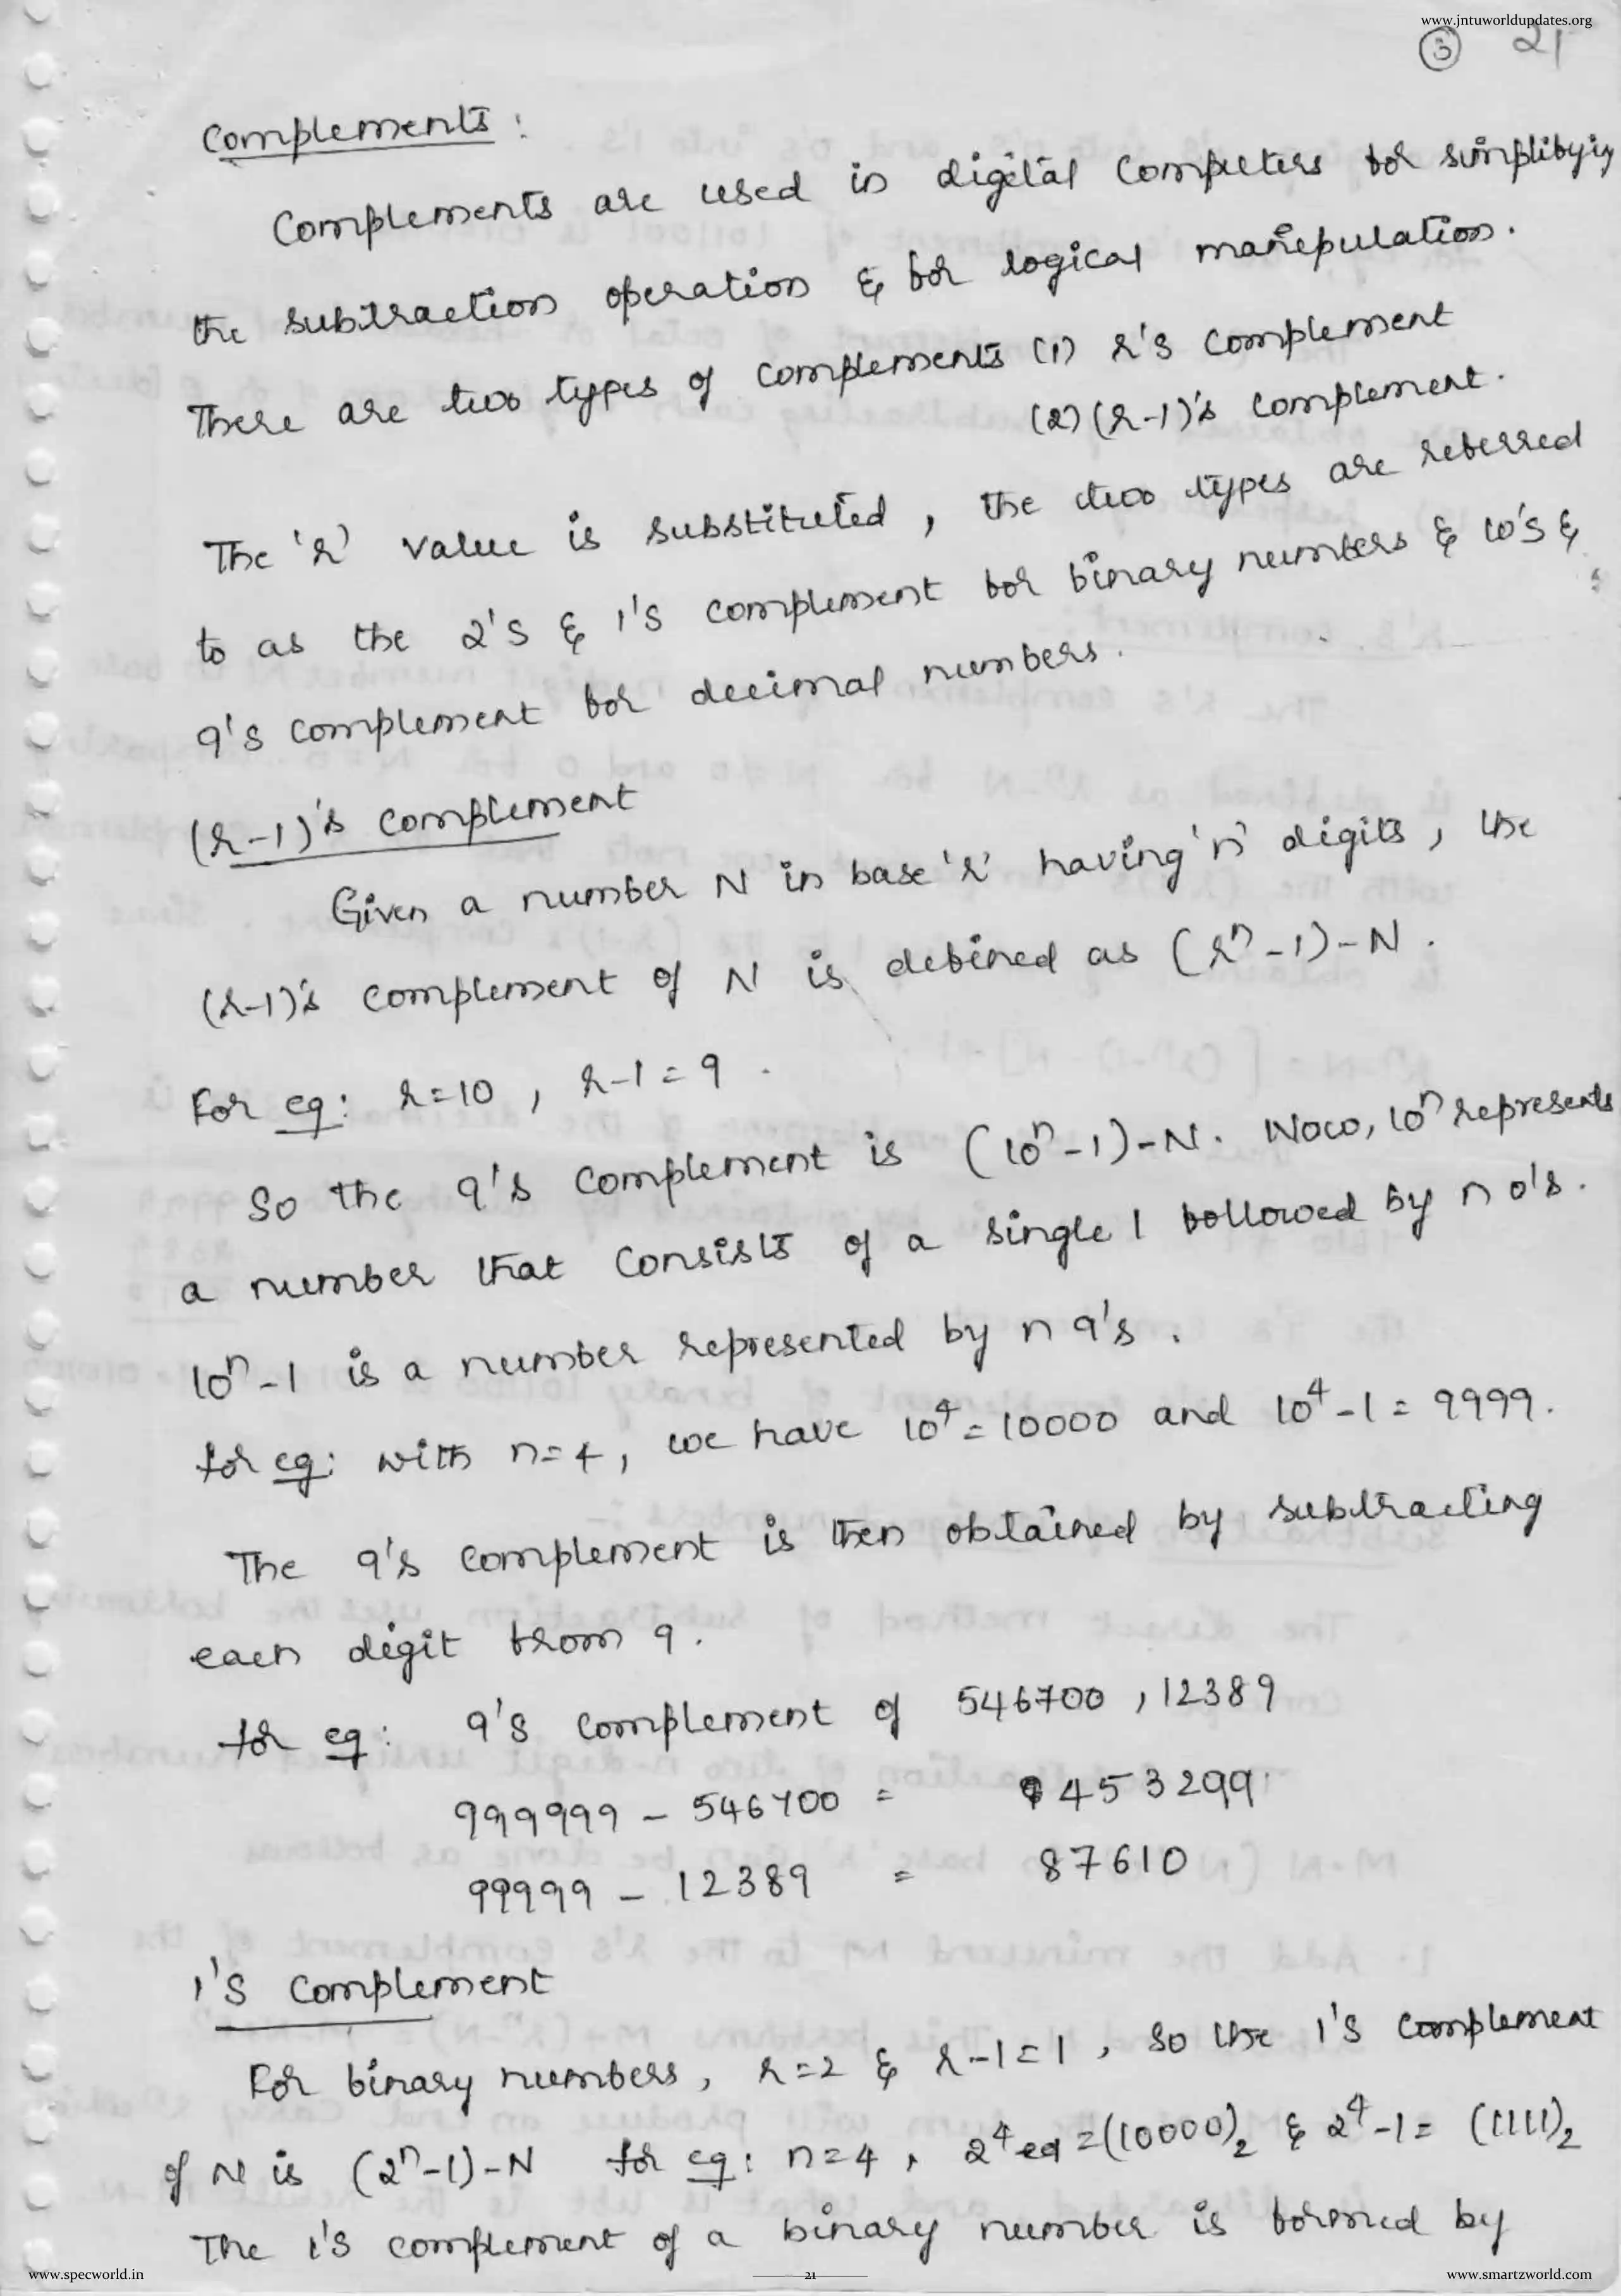 www.jntuworldupdates.org
3 21
Complements:
Complements are used in digital computers for simplifying
the subtraction operation & for logical manipulation.
There are two types of complements (1) r's complement
(2) (r-1)'s complement.
The 'r' value is substituted, the two types are referred
to as the 2's & 1's complement for binary numbers & 10's &
9's complement for decimal numbers.
(r-1)'s complement
Given a number N in base 'r' having 'n' digits, the
(r-1)'s complement of N is defined as (rⁿ-1)-N.
For eg: r=10, r-1=9.
So the 9's complement is (10ⁿ-1)-N. Now, 10ⁿ represents
a number that consists of a single 1 followed by n 0's.
10ⁿ-1 is a number represented by n 9's.
for eg: with n=4, we have 10⁴=10000 and 10⁴-1=9999.
The 9's complement is then obtained by subtracting
each digit from 9.
for eg: 9's complement of 546700, 12389
999999 - 546700 = 453299
99999 - 12389 = 87610
1's complement
For binary numbers, r=2 & r-1=1, so the 1's complement
of N is (2ⁿ-1)-N for eg: n=4, 2⁴ =(10000)₂ & 2⁴-1=(1111)₂
The 1's complement of a binary number is formed by
www.specworld.in
21
www.smartzworld.com